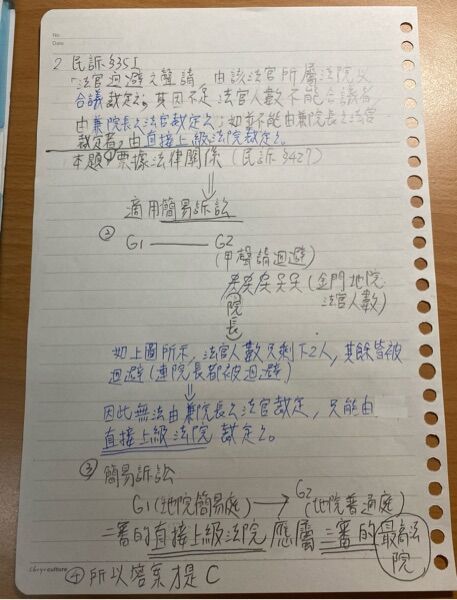 No.
Date
2 民訴§35 I
「法官迴避之聲請,由該法官所屬法院以
合議裁定之;其因不足法官人數不能合議者
由兼院長之法官裁定之;如亦不能由兼院長之法官
裁定者,由直接上級法院裁定之。
本題,票據法律關係(民訴§427)
適用簡易訴訟
② G1 G2
(甲聲請迴避)
(金門地院
法官人數)
院長
如上圖所示,法官人數只剩下2人,其餘皆被
迴避(連院長都被迴避)
因此無法由兼院長之法官裁定,只能由
直接上級法院裁定之。
③ 簡易訴訟
G1(地院簡易庭) G2(地院普通庭)
二審的直接上級法院應屬三審的最高法院
④ 所以答案才是C